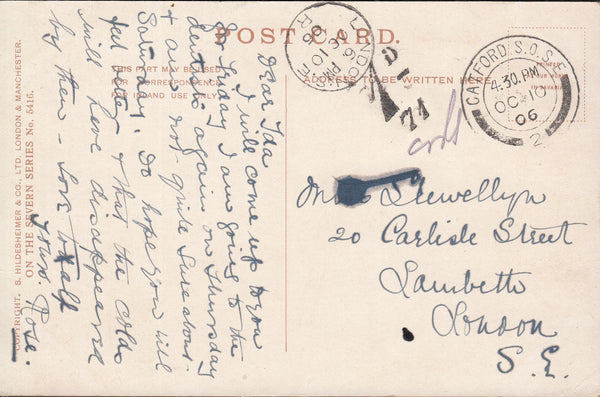 POST CARD.
THIS PART MAY BE USED
FOR CORRESPONDENCE
FOR INLAND USE ONLY
ADDRESS TO BE WRITTEN HERE.
COPYRIGHT. S. HILDESHEIMER & CO., LTD. LONDON & MANCHESTER.
ON THE SEVERN SERIES No. 5416.
CATFORD S.O. S.E.
4.30 PM
OC 10
06
2
LONDON
OC 10
06
71
Dear Ida
I will come up to you
on Friday I am going to the
dentist's again on Thursday
+ am not quite sure about
Saturday. Do hope you will
feel better + that the colds
will have disappeared
by then - Love to all
Yours. Rose.
Llewellyn
20 Carlisle Street
Lambeth
London
S.E.